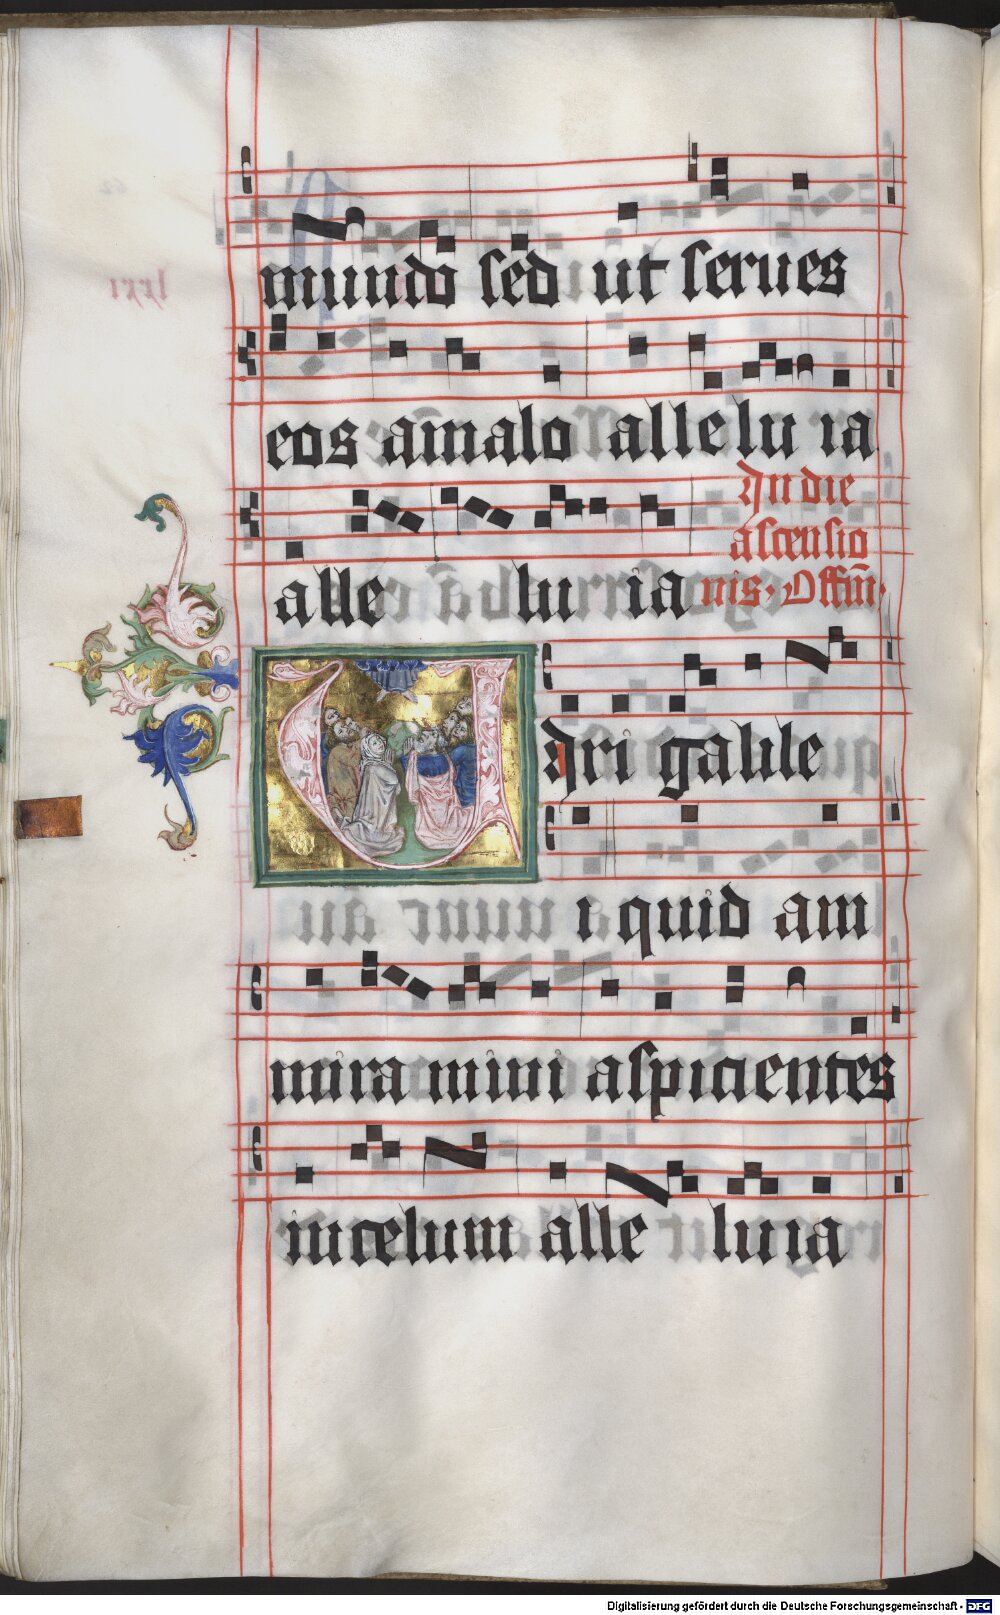 mundo sed ut serues
eos a malo allelu ia
alle lu ia
In die
ascensio
nis. Offm̄.
Viri galile
i quid am
mira mini aspicientes
in celum alle luia
Digitalisierung gefördert durch die Deutsche Forschungsgemeinschaft - DFG